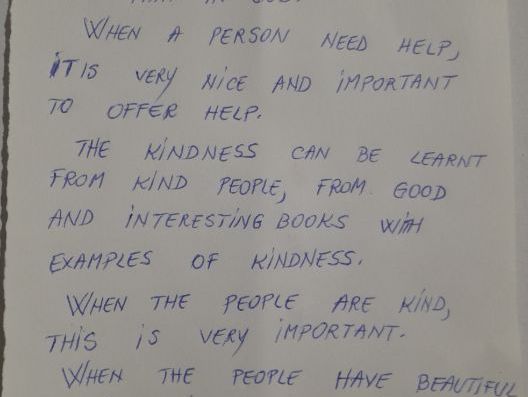 WHEN A PERSON NEED HELP,
iT IS VERY NICE AND iMPORTANT
TO OFFER HELP.
THE KiNDNESS CAN BE LEARNT
FROM KIND PEOPLE, FROM GOOD
AND iNTERESTiNG BOOKS WiTH
EXAMPLES OF KiNDNESS.
WHEN THE PEOPLE ARE KiND,
THiS iS VERY iMPORTANT.
WHEN THE PEOPLE HAVE BEAUTIFUL